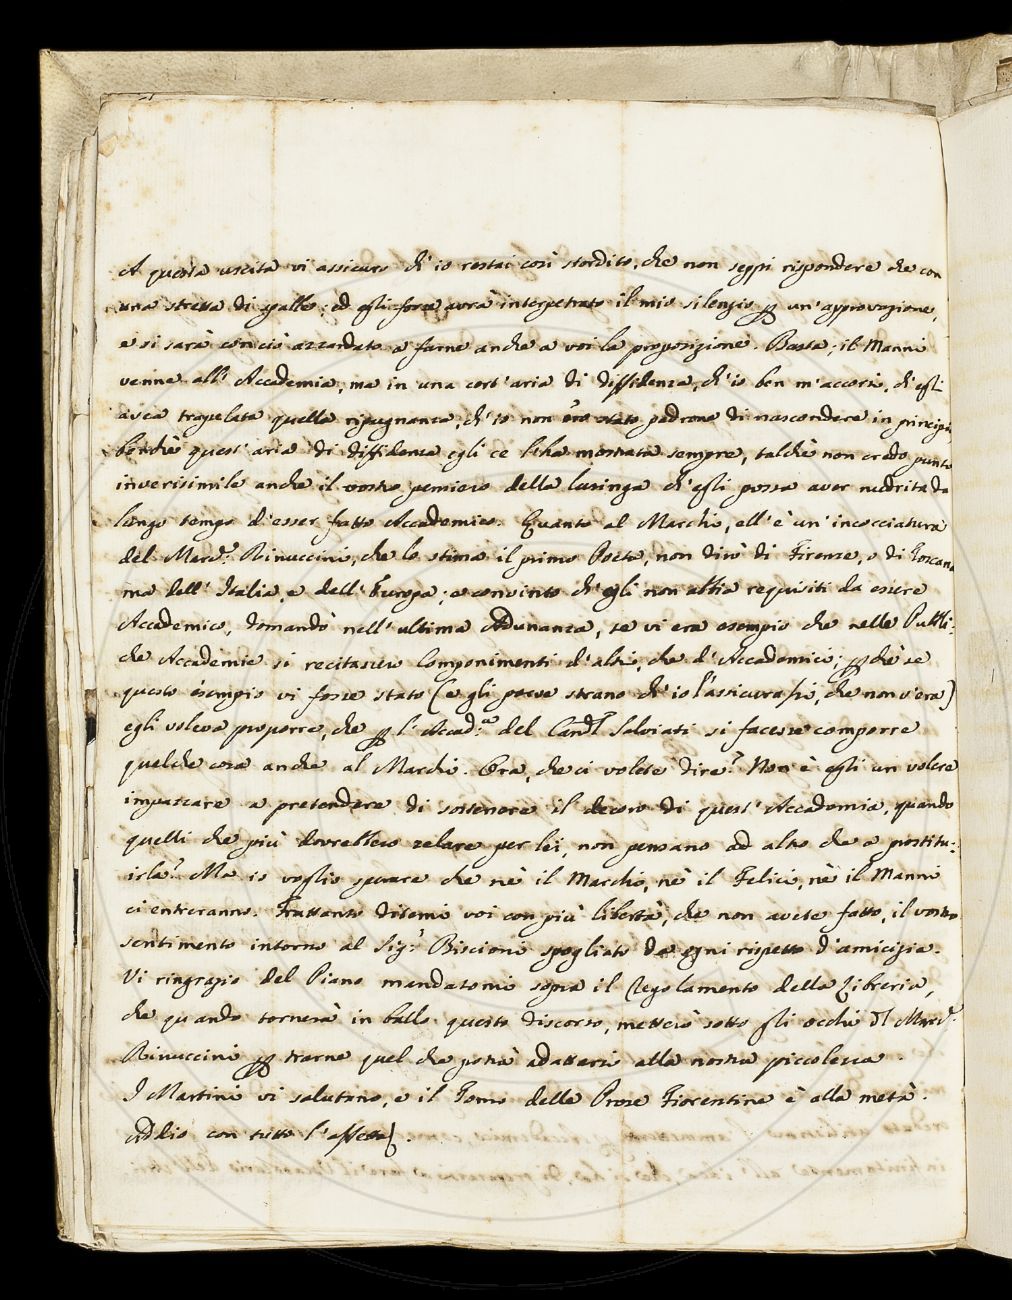 A questa uscita vi assicuro ch'io restai così stordito, che non seppi rispondere che con
una stretta di spalle; ed egli forse avrà interpetrato il mio silenzio p un'approvazione,
e si sarà con ciò azzardato a farne anche a voi la proposizione. Basta; il Manni
venne all'Accademia, ma in una cert'aria di diffidenza, ch'io ben m'accorsi, ch'egli
avea trapelata quella ripugnanza, ch'io non ero stato padrone di nascondere in principio,
benchè quest'aria di diffidenza egli ce l'ha mostrata sempre, talchè non credo punto
inverisimile anche il vostro pensiero della lusinga ch'egli possa aver nudrita da
lungo tempo d'esser fatto Accademico. Quanto al Marchi, ell'è un'incocciatura
del March.e Rinuccini, che lo stima il primo Poeta, non dirò di Firenze, o di Toscana
ma dell'Italia, e dell'Europa; e convinto ch'egli non abbia requisiti da essere
Accademico, domandò nell'ultima Adunanza, se vi era esempio che nelle Pubbli:
che Accademie si recitassero Componimenti d'altri, che d'Accademici; pchè se
questo esempio vi fosse stato (e gli parve strano ch'io l'assicurassi, che non v'era)
egli voleva proporre, che p l'Accad.a del Cardl Salviati si facesse comporre
qualche cosa anche al Marchi. Ora, che ci volete dire? Non è egli un volere
impazzare a pretendere di sostenere il decoro di quest'Accademia, quando
quelli che più dovrebbero zelare per lei, non pensano ad altro che a prostitu:
irla? Ma io voglio sperare che nè il Marchi, nè il Felici, nè il Manni
ci entreranno. Frattanto ditemi voi con più libertà, che non avete fatto, il vostro
sentimento intorno al Sig.r Biscioni spogliato da ogni rispetto d'amicizia.
Vi ringrazio del Piano mandatomi sopra il Regolamento della Libreria,
che quando tornerà in ballo questo discorso, metterò sotto gli occhi dl March.e
Rinuccini p trarne quel che potrà adattarsi alla nostra piccolezza.
I Martini vi salutano, e il Tomo delle Prose Fiorentine è alla metà.
Addio con tutto l'affetto.